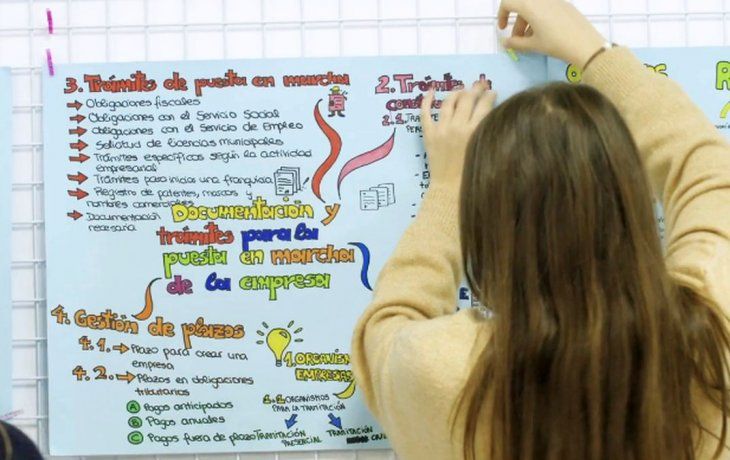 3. Trámites de puesta en marcha
→ Obligaciones fiscales
→ Obligaciones con el Servicio Social
→ Obligaciones con el Servicio de Empleo
→ Solicitud de licencias municipales
→ Trámites específicos según la actividad
empresarial
→ Trámites para iniciar una franquicia
→ Registro de patentes, marcas y
nombres comerciales
→ Documentación
necesaria
2. Trámites de
2.1.
Documentación y
trámites para la
puesta en marcha
de la empresa
4. Gestión de plazos
4.1. → Plazo para crear una
empresa
4.2. → Plazos en obligaciones
tributarias
A Pagos anticipados
B Pagos anuales
C Pagos fuera de plazo
1. ORGANISM
EMPRESAS
1.1 ORGANISMOS
PARA LA TRAMITACIÓN
TRAMITACIÓN
PRESENCIAL
TRAMITACIÓN
R